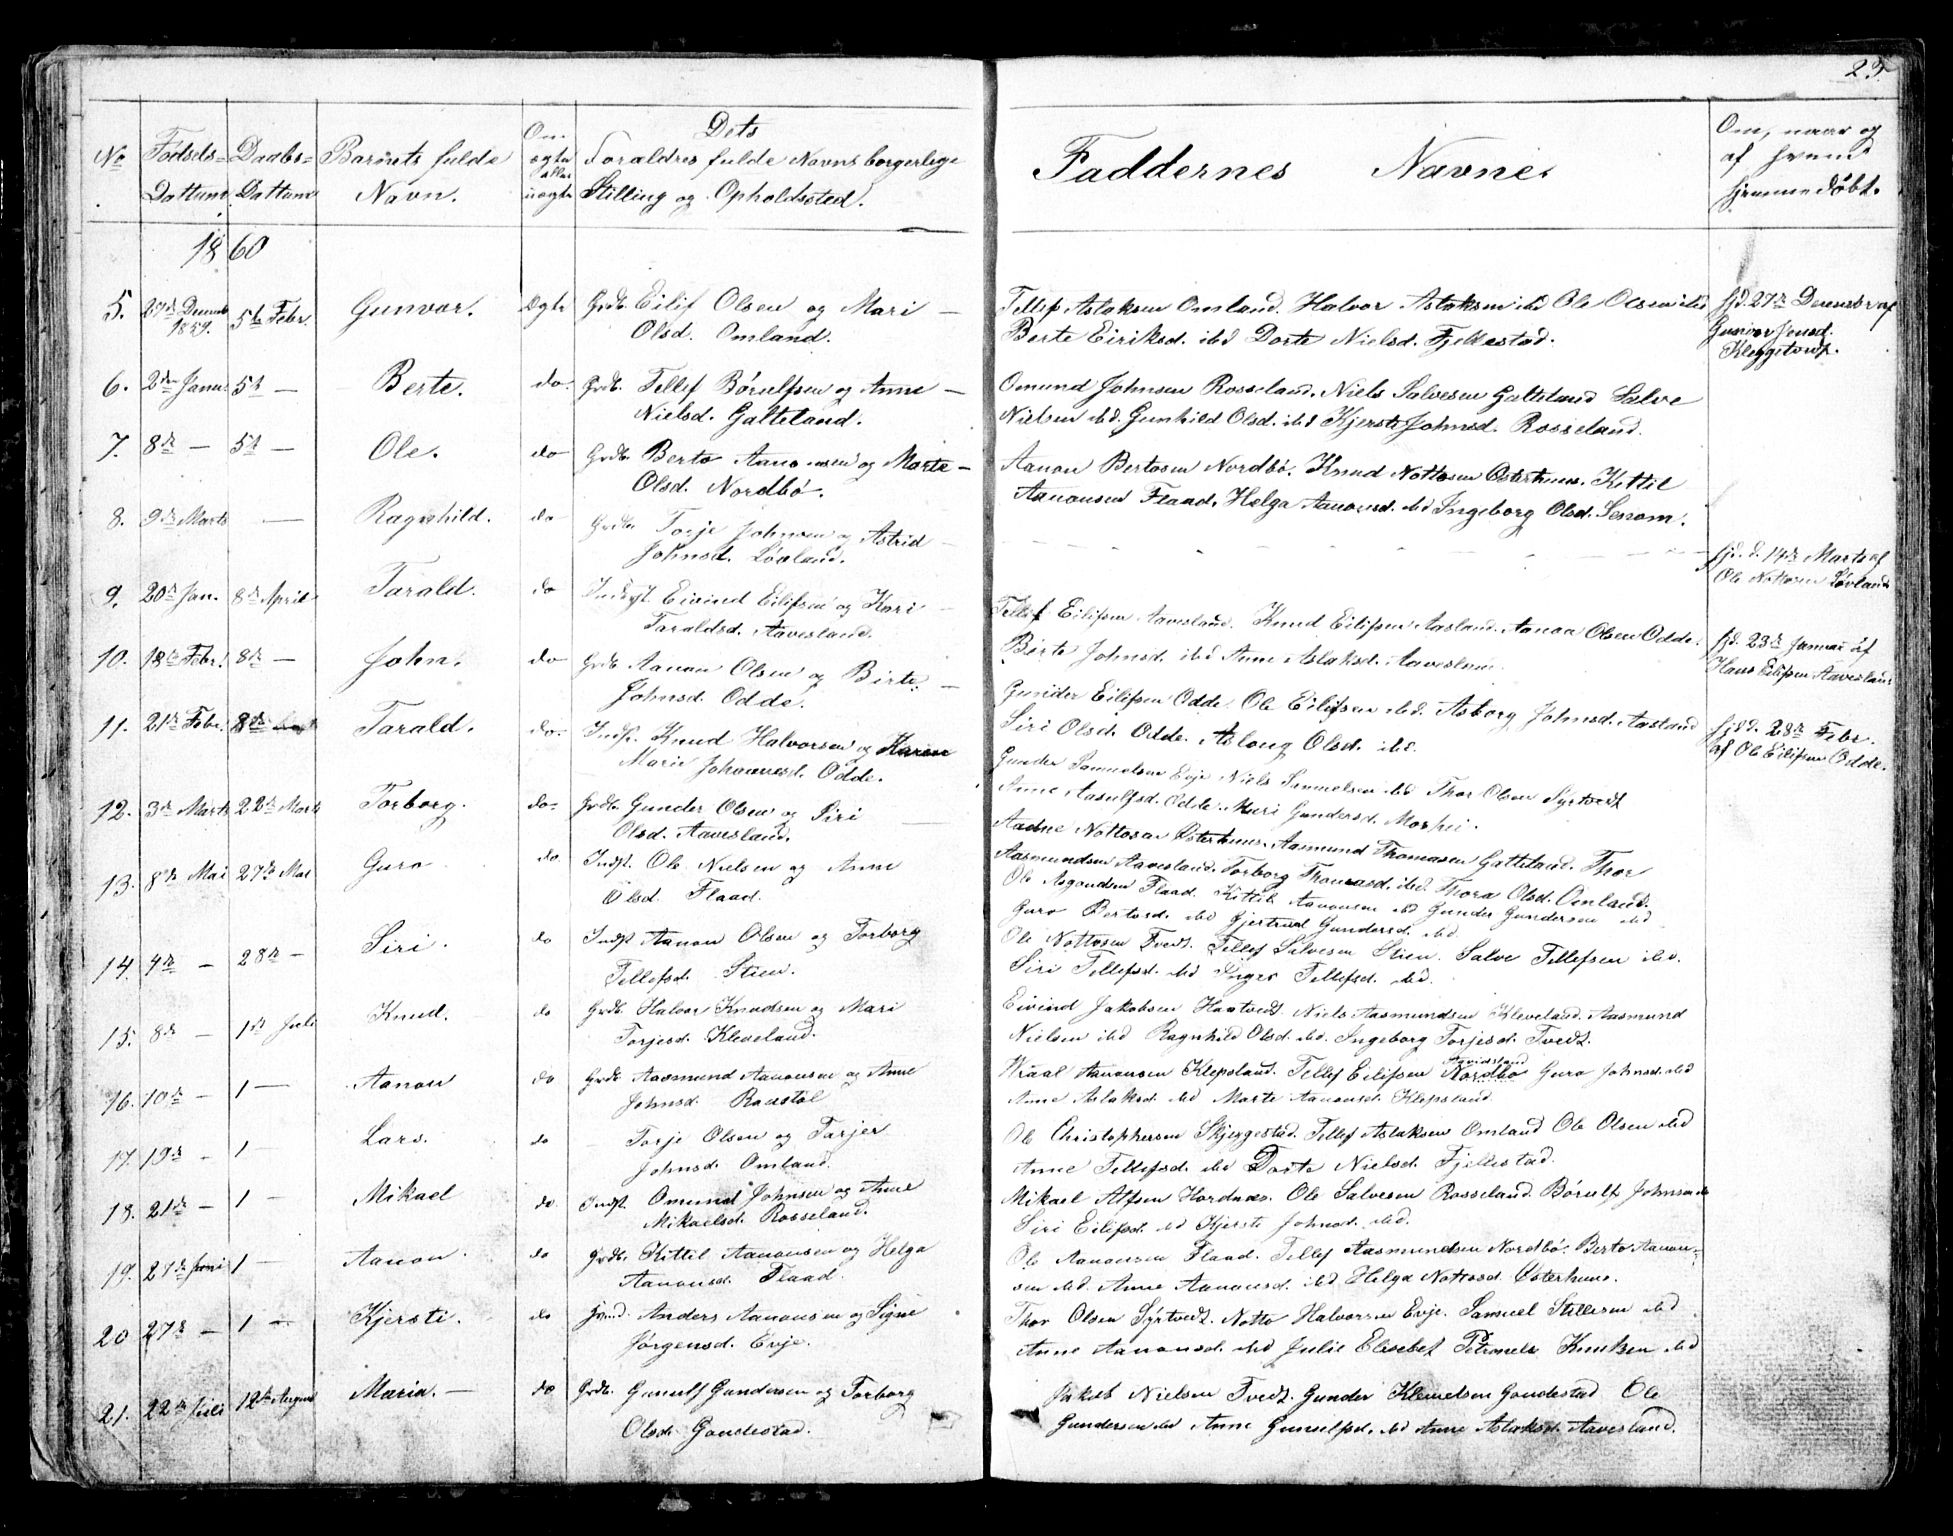 23.
No Fødsels- Dattum Daabs- Dattum Barnets fulde Navn. Om ægte eller uægte Dets Foraldres fulde Navns borgerlige Stilling og Opholdssted.
Faddernes Navne.
Om, naar og af hvem hjemmedøbt.
1860
5. 27de Decemb 1859. 5te Febr. Gunvor. Ægte Grdb. Eilif Olsen og Mari —
Olsd. Omland.
Tellef Aslaksen Omland. Halvor Aslaksen ibd Ole Olsen ibd
Berte Eiriksd. ibd Dorte Nielsd. Fjellestad.
hjd. 27de Decembr af
Gunvor Jensd.
6. 2den Janu. 5te — Berte. do. Grdb. Tellef Børulfsen og Anne —
Nielsd. Galteland.
Omund Johnsen Rosseland. Niels Salvesen Galteland Salve
Nielsen ibd. Gunhild Olsd. ibd Kjersti Johnsd. Rosseland.
7. 8de — 5te — Ole. do Grdb. Berto Aanonsen og Marte —
Olsd. Nordbø.
Aanon Bertosen Nordbø. Knud Nottosen Østerhuus. Kittil
Aanonsen Flaad. Helga Aanonsd. ibd Ingeborg Olsd. Senom.
8. 9de Marts — Ragnhild. do Grdb. Torje Johnsen og Astrid —
Johnsd. Løvland.
hjd. d. 14de Marts af
Ole Nottosen Løvland
9. 20de Jan. 8de April Tarald. do Indst. Eivind Eilifsen og Kari —
Taraldsd. Aavesland.
Tellef Eilifsen Aavesland. Knud Eilifsen Aasland. Aanon Olsen Odde.
Børte Johnsd. ibd Anne Aslaksd. Aavesland.
hjd. 23de Januar af
Hans Eilifsen Aavesland
10. 18de Febr. 8de — John. do Grdb. Aanon Olsen og Birte —
Johnsd. Odde.
Gunder Eilifsen Odde. Ole Eilifsen ibd. Asborg Johnsd. Aasland
Siri Olsd. Odde. Aslaug Olsd. ibd.
hjd. 28de Febr.
af Ole Eilifsen Odde.
11. 21de Febr. 8de Tarald. do. Indst. Knud Halvorsen og Karen
Marie Johannesd. Odde.
Gunder Samuelsen Evje Niels Samuelsen ibd Thor Olsen Syrtveit
Anne Aasulfsd. Odde. Mari Gundersd. Morhei.
12. 3de Marts 22de Marts Torborg. do. Grdb. Gunder Olsen og Siri —
Olsd. Aavesland.
Aadne Nottosen Østerhuus. Aasmund Thomasen Galteland. Thor
Aasmundsen Aavesland. Torborg Thomasd. ibd. Thora Olsd. Omland.
13. 8de Mai 27de Mai Guro do Indst. Ole Nielsen og Anne
Olsd. Flaad.
Ole Asgundsen Flaad. Kittil Aanonsen ibd Gunder Gundersen ibd
Guro Bertosd. ibd Gjertrud Gundersd. ibd
14. 4de — 28de — Siri. do Indst Aanon Olsen og Torborg
Tellefsd. Stien.
Ole Nottosen Tvedt. Tellef Salvesen Stien. Salve Tellefsen ibd.
Siri Tellefsd. ibd Inger Tellefsd. ibd.
15. 8de — 1ste Juli Knud. do Grdb. Halvor Knudsen og Mari
Torjesd. Kleveland.
Eivind Jakobsen Haatvedt. Niels Aasmundsen Kleveland. Aasmund
Nielsen ibd Ragnhild Olsd. ibd. Ingeborg Torjesd. Tvedt.
16. 10de — 1 — Aanon do Grdb. Aasmund Aanonsen og Anne
Johnsd. Raustøl
Wraal Aanonsen Klepsland. Tellef Eilifsen Nordbø Guro Johnsd. ibd
Anne Aslaksd. ibd Marte Aanonsd. Klepsland
17. 19de — 1 — Lars. do — Torje Olsen og Tarjer
Johnsd. Omland.
Ole Christophersen Skjeggestad. Tellef Aslaksen Omland Ole Olsen ibd
Anne Tellefsd. ibd Dorte Nielsd. Fjellestad.
18. 21de — 1 — Mikael do Indst. Omund Johnsen og Anne
Mikaelsd. Rosseland.
Mikael Alfsen Hordnes. Ole Salvesen Rosseland. Børulf Johnsen ibd
Siri Eilifsd. ibd Kjersti Johnsd. ibd.
19. 27de Juni 1 — Aanon. do Grdb. Kittil Aanonsen og Helga
Aanonsd. Flaad.
Ole Aanonsen Flaad. Tellef Aasmundsen Nordbø. Berto Aanon-
sen ibd. Anne Aanonsd. ibd. Helga Nottosd. Østerhuus.
20 27de — 1 — Kjersti. do Anders Aanonsen og Signe
Jørgensd. Evje.
Thor Olsen Syrtvedt. Notto Halvorsen Evje. Samuel Stillesen ibd
Anne Aanonsd. ibd Julie Elisebet Petronele Knudsen ibd
21. 22de Juli 12te August Maria. — do Grdb. Gunulf Gundersen og Torborg
Olsd. Gaudestad.
Jakob Nielsen Tvedt. Gunder Klemetsen Gaudestad Ole
Gundersen ibd Anne Gunulfsd. ibd Anne Aslaksd. Aavesland.